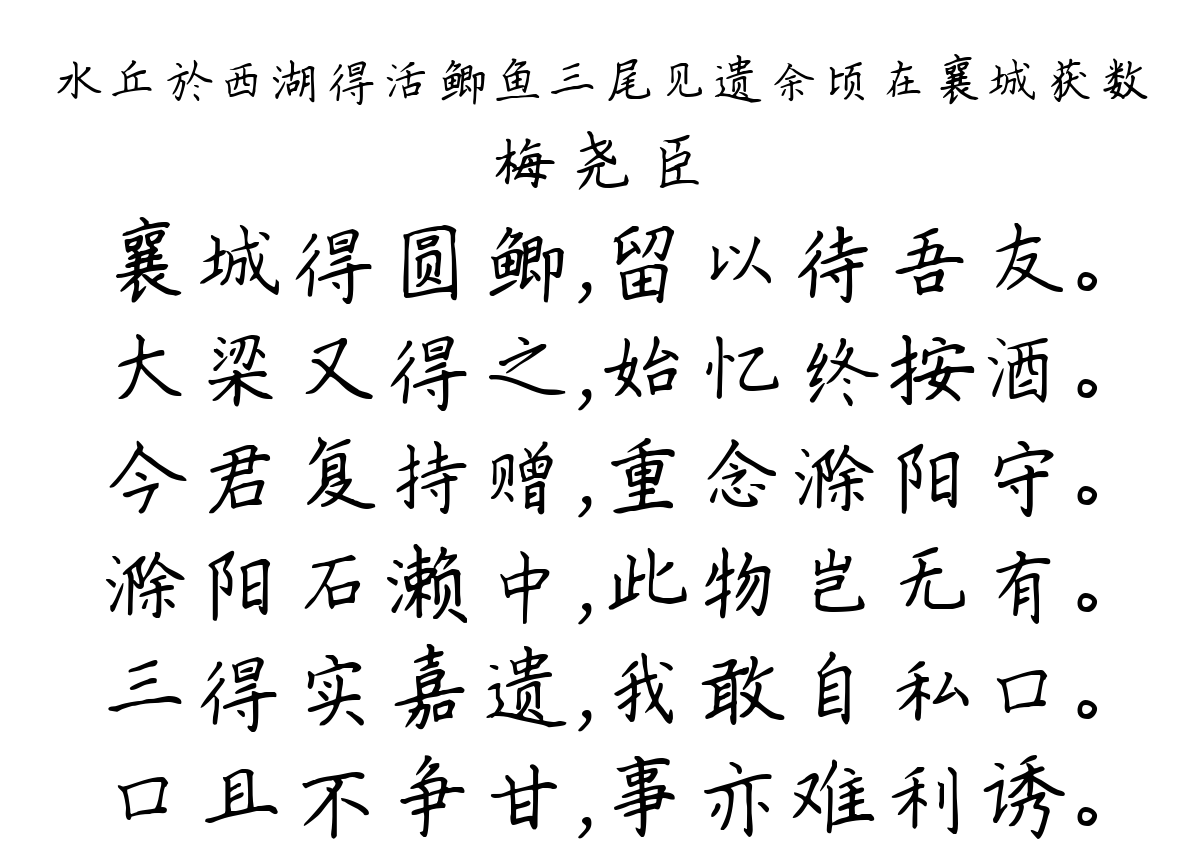 水丘於西湖得活鲫鱼三尾见遗余顷在襄城获数
梅尧臣
襄城得圆鲫,留以待吾友。
大梁又得之,始忆终按酒。
今君复持赠,重念滁阳守。
滁阳石濑中,此物岂无有。
三得实嘉遗,我敢自私口。
口且不争甘,事亦难利诱。